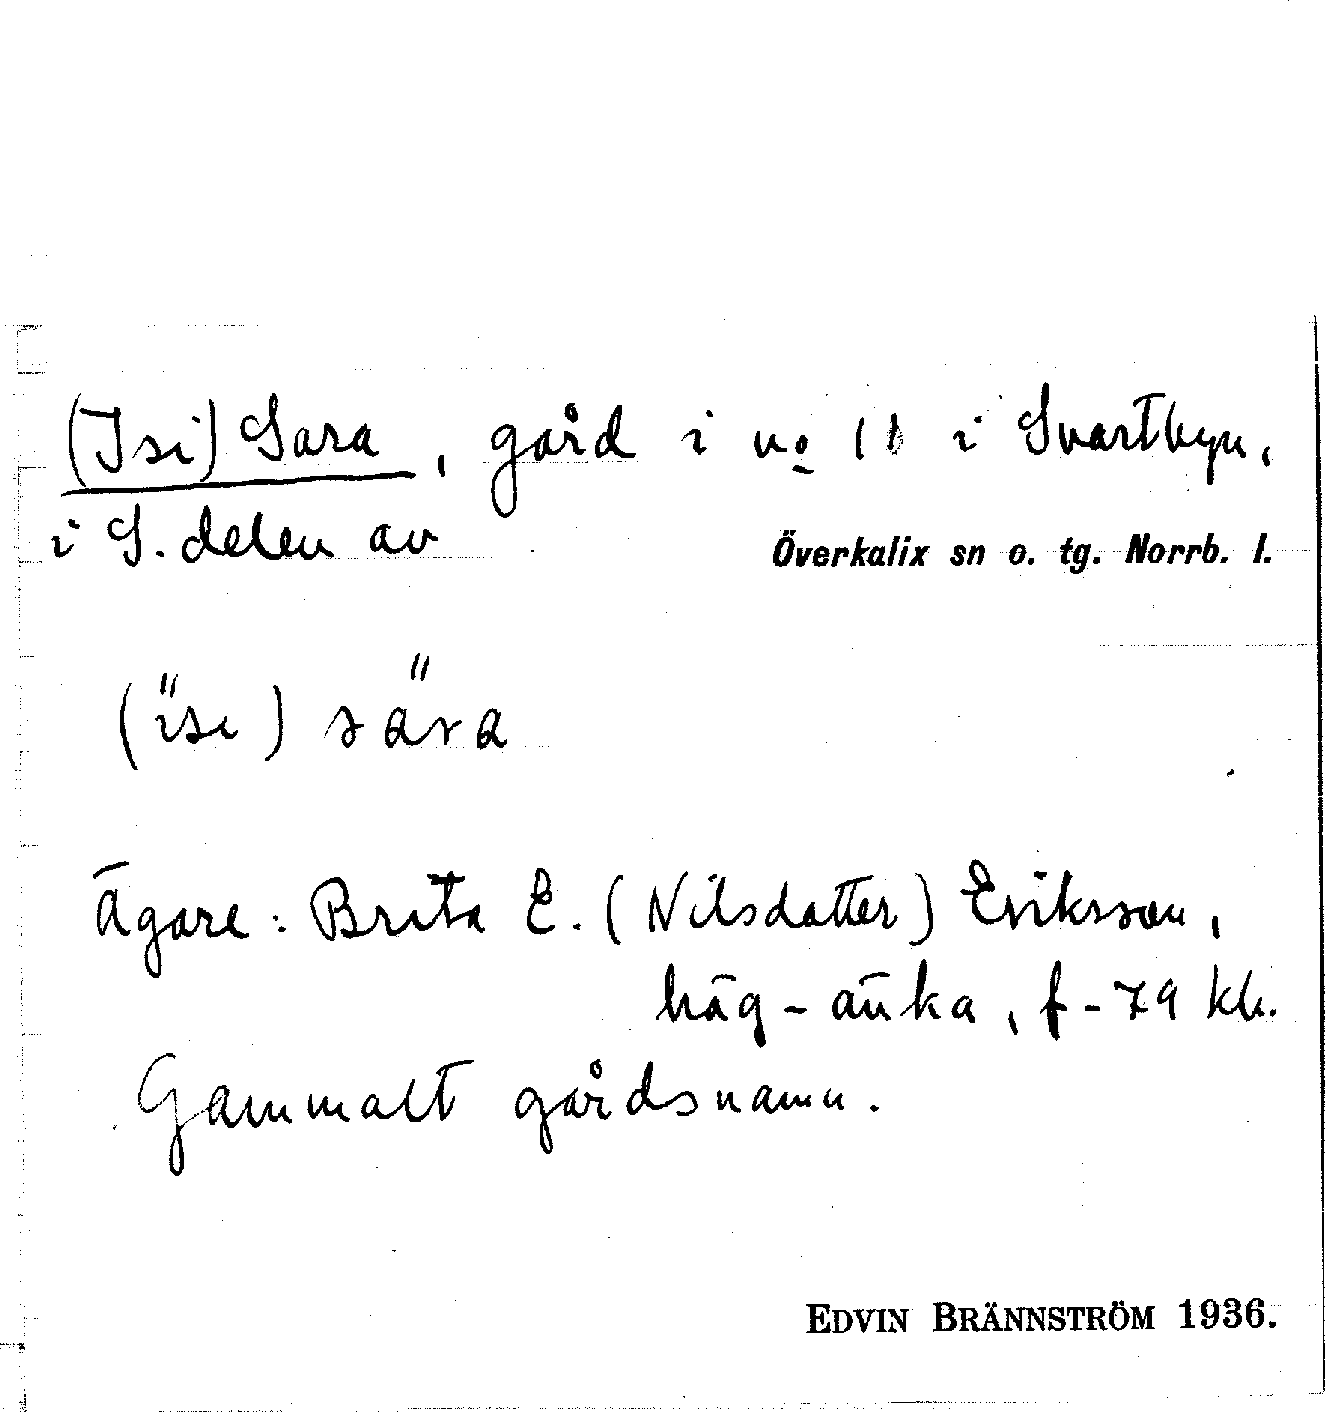 (Isi) Sara, gård i no 11 i Svartbyn,
i S. delen av
Överkalix sn o. tg. Norrb. l.
(ïsi) sära
Ägare: Brita E. (Nilsdatter) Eriksson,
häg-änka, f-79 kb.
Gammalt gårdsnamn.
EDVIN BRÄNNSTRÖM 1936.